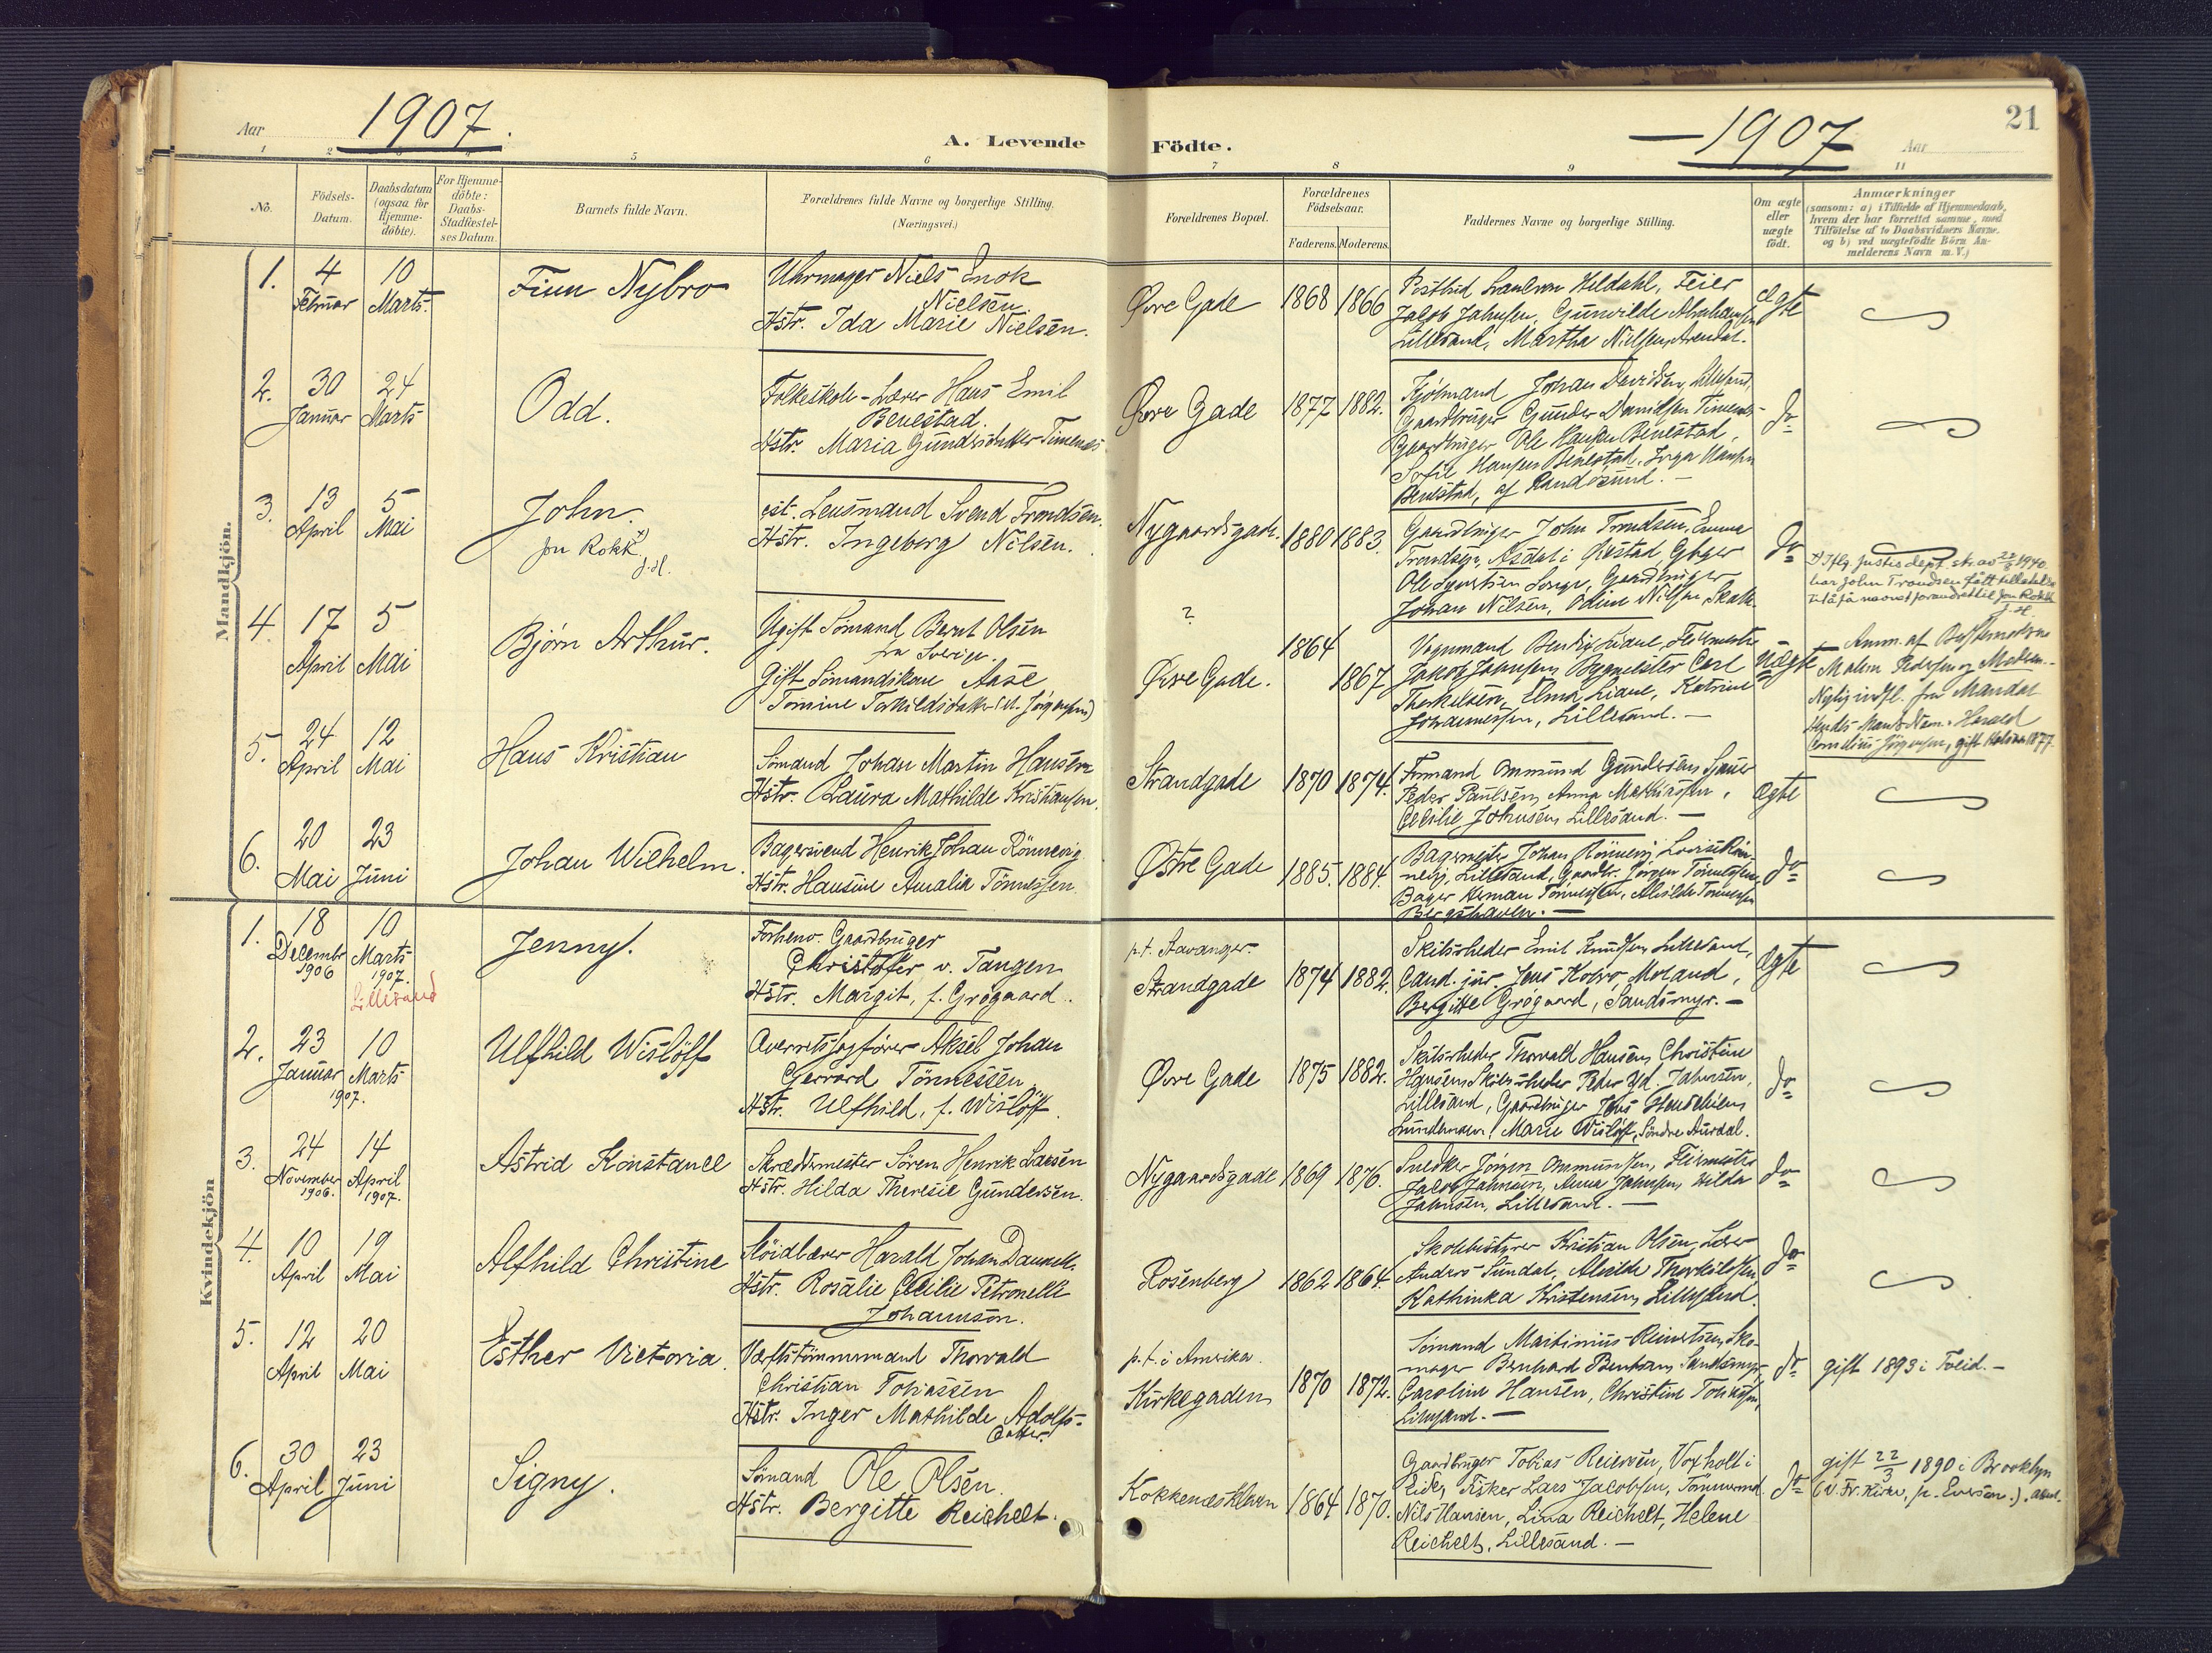 Aar 1907.
A. Levende
Födte.
— 1907
Aar
21
1 2 3 4 5 6 7 8 9 11
No.
Födsels-
Datum.
Daabsdatum
(ogsaa for
Hjemme-
döbte).
For Hjemme-
döbte:
Daabs-
Stadfæstel-
ses Datum.
Barnets fulde Navn.
Forældrenes fulde Navne og borgerlige Stilling.
(Næringsvei.)
Forældrenes Bopæl.
Forældrenes
Födselsaar.
Faderens. Moderens.
Faddernes Navne og borgerlige Stilling.
Om ægte
eller
uægte
födt.
Anmærkninger
(saasom: a) i Tilfælde af Hjemmedaab,
hvem der har forrettet samme, med
Tilföielse af to Daabsvidners Navne.
og b) ved uægtefödte Börn An-
melderens Navn m. V.)
Mandkjön.
1. 4 Februar 10 Marts. Finn Nybro
Uhrmager Niels Enok
Nielsen.
Hstr. Ida Marie Nielsen.
Øvre Gade 1868 1866
Feier
Jakob Jahnsen, Gunvilde Abrahamsen
Lillesand, Martha Nielsen, Arendal.
ægte
2. 30 Januar 24 Marts Odd.
Folkeskole-Lærer Hans Emil
Benestad.
Hstr. Maria Gundersdatter Timenes
Øvre Gade 1877 1882.
Kjøbmand Johan Davidsen, Lillesand,
Gaardbruger Gunder Davidsen Timenes-
Gaardbruger Ole Hansen Benestad,
Sofie Hansen Benestad, Inga Hansen
Benestad, af Randøsund. —
do
3. 13 April 5 Mai John.
Jon Rokk x)
J.H.
cst. Lensmand Svend Trondsen.
Hstr. Ingeborg Nilsen.
Nygaardsgade. 1880 1883.
Gaardbruger John Trondsen, Emma
Trondsen, Asdal i Øiestad, Gbger
Gaardbruger
Johan Nilsen, Odine Nilsen,
do
x) Iflg. Justisdept. skr. av 22/8 1940
har John Trondsen fått tillatelse
til å få navnet forandret til Jon Rokk
J.H.
4. 17 April 5 Mai Bjørn Arthur.
Ugift Sömand Bernt Olsen
fra Sverige.
Gift Sömandskone Aase
Tomine Torkildsdatter (M. Jörgensen)
?
Øvre Gade. 1864 1867
Vognmand Bendix Liane, Feiermester
Jakob Jahnsen, Bygmester Carl
Therkelsen, Elma Liane, Katrine
Johannessen, Lillesand. —
Uægte
Anm. af Bedstemoderen
Malen Pedersen og Moderen.
Nylig indfl. fra Mandal
Hendes Mands Navn: Harald
Cornelius Jörgensen, gift
5. 24 April 12 Mai Hans Kristian
Sömand Johan Martin Hansen
Hstr. Laura Mathilde Kristiansen.
Strandgade 1870 1874.
Ommund Gundersen,
Peder Paulsen, Anna Mathiasen,
Cecilie Johnsen, Lillesand. —
ægte
6. 20 Mai 23 Juni Johan Wilhelm.
Bagersvend Henrik Johan Rönnevig
Hstr. Hansine Amalia Tönnessen
Østre Gade 1885. 1884.
Bagermester Johan Rönnevig, Lovise Rön-
nevig, Lillesand, Gaardbr. Jörgen Tönnessen,
Bager Herman Tönnessen, Alvilde Tönnessen
Bergshaven. —
do
Kvindekjön
1. 18 Decembr 1906 10 Marts 1907. Lillesand Jenny.
Forhenv. Gaardbruger
Christoffer v. Tangen
Hstr. Margit, f. Grögaard.
p.t. Stavanger.
Strandgade 1874 1882.
Skibsrheder Emil Knudsen, Lillesand,
Cand. jur. Jens Moland,
Bergitte Grögaard, Sandsmyr. —
Ægte
2. 23 Januar 10 Marts 1907. Ulfhild Wislöff
Overretssagfører Aksel Johan
Gerrard Tönnessen
Hstr. Ulfhild, f. Wislöff.
Øvre Gade 1875 1882.
Skibsrheder Thorvald Hansen, Christine
Hansen, Skibsrheder Peder Johnsen,
Lillesand, Gaardbruger Jens
Marie Wislöff, Söndre Aurdal.
do
3. 24 November 1906. 14 April 1907. Astrid Konstance
Skræddermester Sören Henrik Larsen
Hstr. Hilda Theresie Gundersen.
Nygaardsgade 1869 1876.
Snedker Jörgen Ommundsen, Feiermester
Jacob Jahnsen, Anna Jahnsen, Hilda
Jahnsen, Lillesand. —
do
4. 10 April 19 Mai Alfhild Christine
Slöidlærer Harald Johan Dannevig
Hstr. Rosalie Cecilie Petronelle
Johannson.
Rosenberg 1862 1864.
Skolebestyrer Kristian Olsen, Lærer
Anders Sundal, Alvilde Thorkilsen,
Kathinka Kristensen, Lillesand.
do
5. 12 April 20 Mai Esther Victoria.
Værftstömmermand Thorvald
Christian Tobiassen
Hstr. Inger Mathilde Adolfs-
datter.
p.t. i Amerika.
Kirkegaden 1870 1872.
Sömand Martinius Reinertsen, Sko-
mager Bernhard Berntsen, Sandsmyr,
Caroline Hansen, Christine Tobiassen,
Lillesand. —
do
gift 1893 i Tveid. —
6. 30 April 23 Juni Signy.
Sömand Ole Olsen.
Hstr. Bergitte Reichelt.
Kokkenæskleven 1864 1870.
Gaardbruger Tobias Reiersen, Voxholt i
Eide, Fisker Lars Jacobsen, Tömmermd.
Nils Hansen, Lina Reichelt, Helene
Reichelt, Lillesand. —
do
gift 22/3 1890 i Brooklyn
(v. Fr. Kirke, p. Everson.).